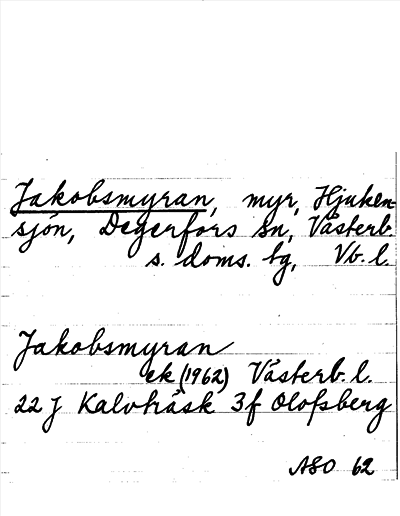 Jakobsmyran, myr, Hjuken-
sjön, Degerfors sn, Västerb.
s. doms. tg, Vb. l.
Jakobsmyran
ek (1962) Västerb. l.
22 J Kalvträsk 3f Olofsberg
ASO 62